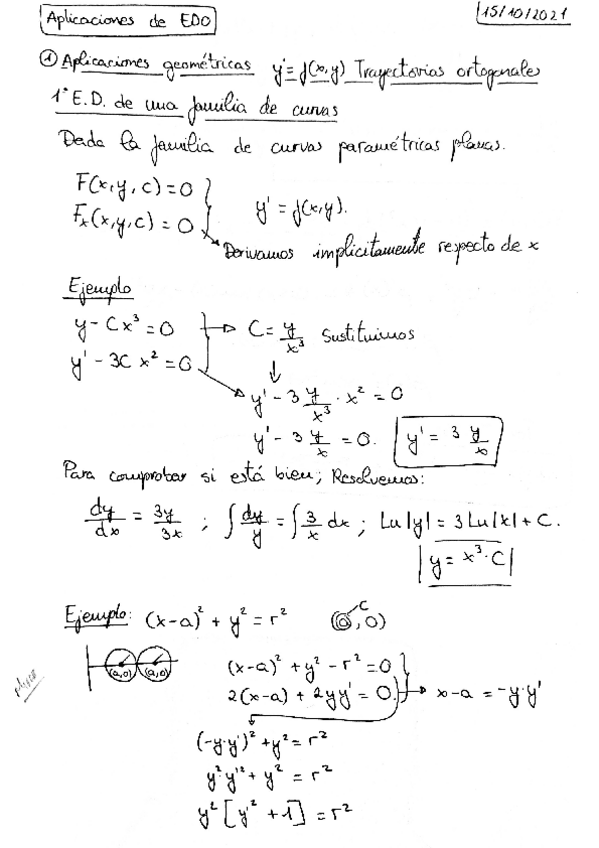 Aplicaciones de EDO
15/10/2021
① Aplicaciones geométricas y' = f(x,y) Trayectorias ortogonales
1º E.D. de una familia de curvas
Dada la familia de curvas paramétricas planas.
F(x,y,c) = 0
Fx(x,y,c) = 0
y' = f(x,y).
Derivamos implicitamente respecto de x
Ejemplo
y - Cx³ = 0 → C = y/x³ Sustituimos
y' - 3C x² = 0
y' - 3 y/x³ · x² = 0
y' - 3 y/x = 0. y' = 3 y/x
Para comprobar si está bien; Resolvemos:
dy/dx = 3y/3x ; ∫ dy/y = ∫ 3/x dx ; Ln|y| = 3Ln|x| + C.
y = x³·C
Ejemplo: (x-a)² + y² = r² (a,0) C
(a,0) (a,0)
(x-a)² + y² - r² = 0
2(x-a) + 2yy' = 0. → x-a = -y·y'
(-y·y')² + y² = r²
y²·y'² + y² = r²
y² [y'² + 1] = r²